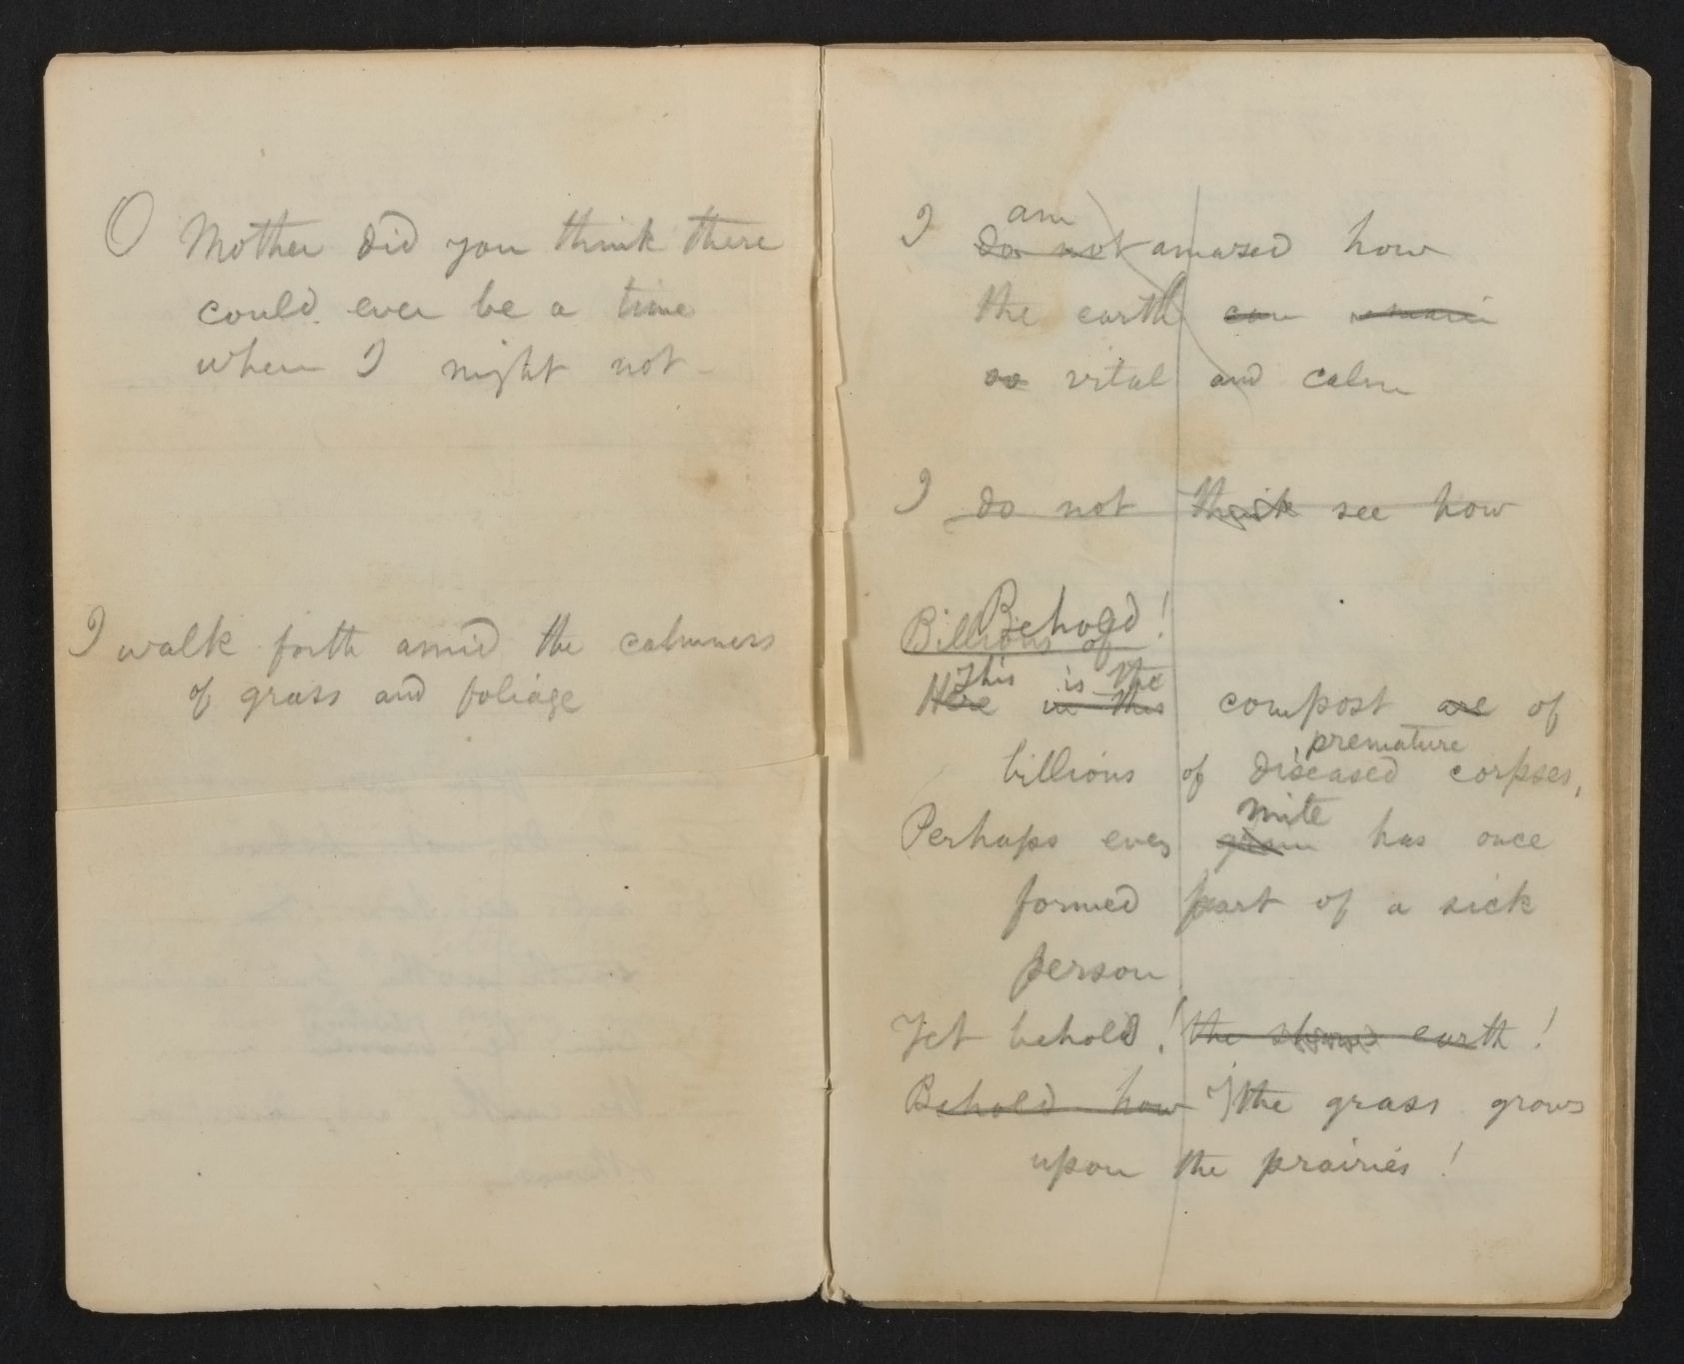 O Mother did you think there
could ever be a time
when I might not
I walk forth amid the calmness
of grass and foliage
am
I do not amazed how
the earth can remain
so vital and calm
I do not think see how
Behold!
Billions of
This is the
Here in this compost are of
premature
billions of diseased corpses,
mite
Perhaps every grain has once
formed part of a sick
person
Yet behold! the earth!
Behold how the grass grows
upon the prairies!